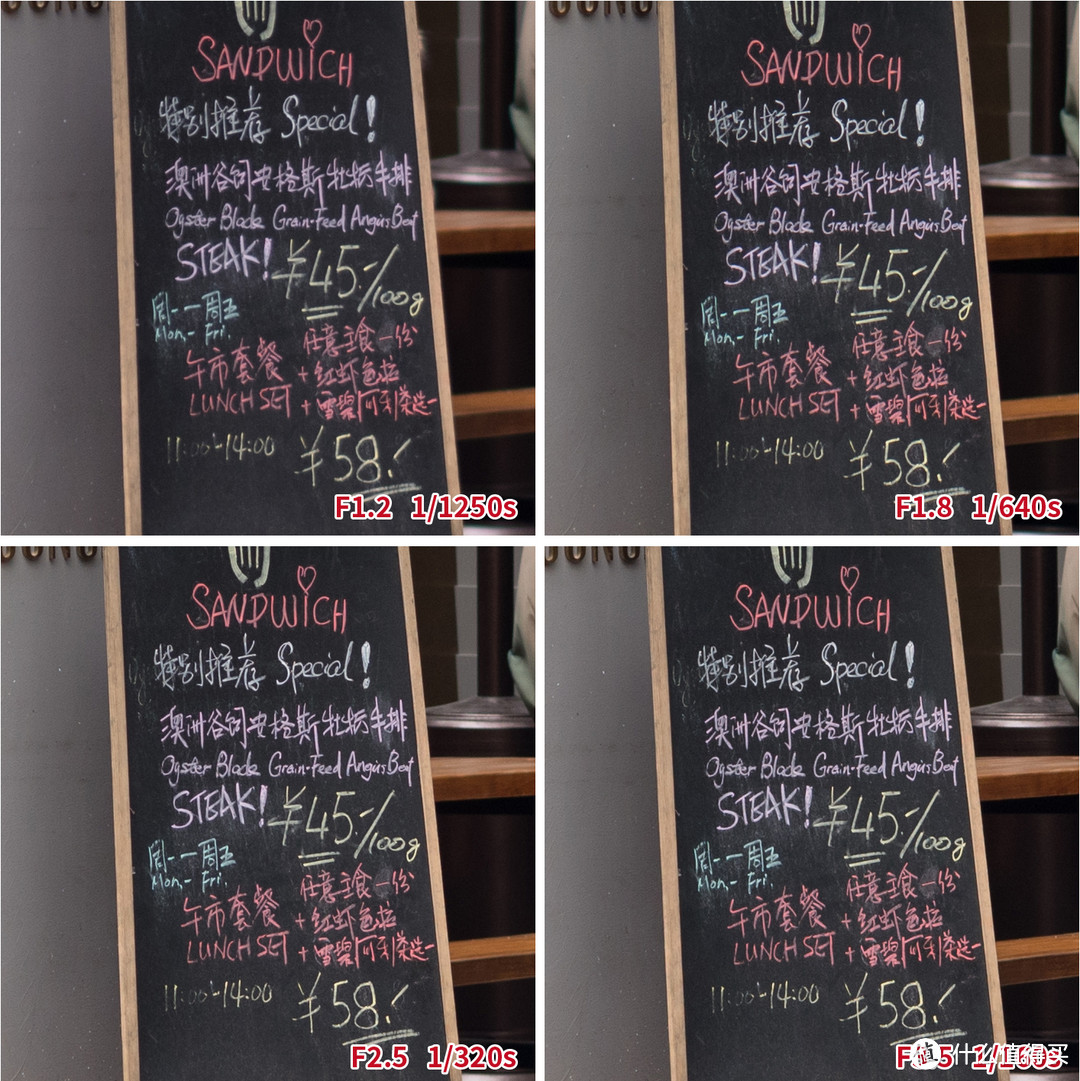 SANDWICH
特别推荐 Special!
澳洲谷饲安格斯牡蛎牛排
Oyster Blade Grain-Feed Angus Beef
STEAK! ¥45-/100g
周一一周五 任意主食一份
Mon,- Fri.
午市套餐 +红虾色拉
LUNCH SET +雪碧 选一
11:00-14:00 ¥58.-
F1.2 1/1250s
SANDWICH
特别推荐 Special!
澳洲谷饲安格斯牡蛎牛排
Oyster Blade Grain-Feed Angus Beef
STEAK! ¥45-/100g
周一一周五 任意主食一份
Mon,- Fri.
午市套餐 +红虾色拉
LUNCH SET +雪碧 选一
11:00-14:00 ¥58.-
F1.8 1/640s
SANDWICH
特别推荐 Special!
澳洲谷饲安格斯牡蛎牛排
Oyster Blade Grain-Feed Angus Beef
STEAK! ¥45-/100g
周一一周五 任意主食一份
Mon,- Fri.
午市套餐 +红虾色拉
LUNCH SET +雪碧 选一
11:00-14:00 ¥58.-
F2.5 1/320s
SANDWICH
特别推荐 Special!
澳洲谷饲安格斯牡蛎牛排
Oyster Blade Grain-Feed Angus Beef
STEAK! ¥45-/100g
周一一周五 任意主食一份
Mon,- Fri.
午市套餐 +红虾色拉
LUNCH SET +雪碧 选一
11:00-14:00 ¥58.-
1/160s
值 什么值得买